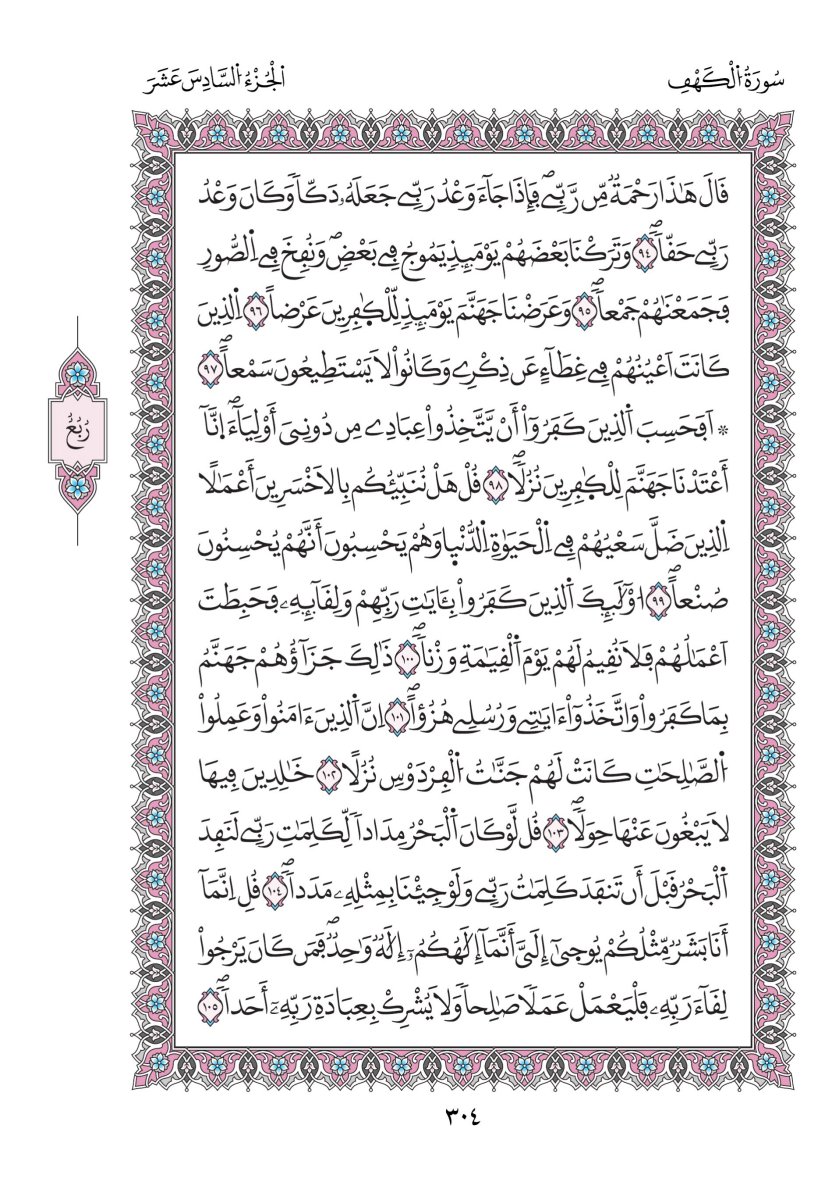 سُورَةُ اُلْكَهْفِ
اُلْجُزْءُ اُلسَّادِسَ عَشَرَ
قَالَ هَٰذَا رَحْمَةٞ مِّن رَّبِّےۖ فَإِذَا جَآءَ وَعْدُ رَبِّے جَعَلَهُۥ دَكّاٗ وَكَانَ وَعْدُ
رَبِّے حَقّاٗۖ ٩٤ وَتَرَكْنَا بَعْضَهُمْ يَوْمَئِذٖ يَمُوجُ فِے بَعْضٖۖ وَنُفِخَ فِے اِ۬لصُّورِ
فَجَمَعْنَٰهُمْ جَمْعاٗۖ ٩٥ وَعَرَضْنَا جَهَنَّمَ يَوْمَئِذٖ لِّلْكٰ۪فِرِينَ عَرْضاًۖ ٩٦ اِ۬لذِينَ
كَانَتَ اَعْيُنُهُمْ فِے غِطَآءٍ عَن ذِكْرِے وَكَانُواْ لَا يَسْتَطِيعُونَ سَمْعاًۖ ٩٧
۞ اَفَحَسِبَ اَ۬لذِينَ كَفَرُوٓاْ أَنْ يَّتَّخِذُواْ عِبَادِے مِن دُونِىَ أَوْلِيَآءَۖ اِ۪نَّآ
أَعْتَدْنَا جَهَنَّمَ لِلْكٰ۪فِرِينَ نُزُلاٗۖ ٩٨ قُلْ هَلْ نُنَبِّئُكُم بِالَاخْسَرِينَ أَعْمَٰلاً
اِ۬لذِينَ ضَلَّ سَعْيُهُمْ فِے اِ۬لْحَيَوٰةِ اِ۬لدُّنْي۪ا وَهُمْ يَحْسِبُونَ أَنَّهُمْ يُحْسِنُونَ
صُنْعاًۖ ٩٩ ا۟وْلَٰٓئِكَ اَ۬لذِينَ كَفَرُواْ بِـَٔايَٰتِ رَبِّهِمْ وَلِقَآئِهِۦ فَحَبِطَتَ
اَعْمَٰلُهُمْ فَلَا نُقِيمُ لَهُمْ يَوْمَ اَ۬لْقِيَٰمَةِ وَزْناٗۖ ١٠٠ ذَٰلِكَ جَزَآؤُهُمْ جَهَنَّمُ
بِمَا كَفَرُواْ وَاتَّخَذُوٓاْ ءَايَٰتِے وَرُسُلِے هُزُؤاًۖ ١٠١ اِنَّ اَ۬لذِينَ ءَامَنُواْ وَعَمِلُواْ
اُ۬لصَّٰلِحَٰتِ كَانَتْ لَهُمْ جَنَّٰتُ اُ۬لْفِرْدَوْسِ نُزُلاً ١٠٢ خَٰلِدِينَ فِيهَا
لَا يَبْغُونَ عَنْهَا حِوَلاٗۖ ١٠٣ قُل لَّوْ كَانَ اَ۬لْبَحْرُ مِدَاداٗ لِّكَلِمَٰتِ رَبِّے لَنَفِدَ
اَ۬لْبَحْرُ قَبْلَ أَن تَنفَدَ كَلِمَٰتُ رَبِّے وَلَوْ جِئْنَا بِمِثْلِهِۦ مَدَداٗۖ ١٠٤ قُلِ اِنَّمَآ
أَنَا بَشَرٞ مِّثْلُكُمْ يُوحىٰٓ إِلَيَّ أَنَّمَآ إِلَٰهُكُمُۥٓ إِلَٰهٞ وَٰحِدٞۖ فَمَن كَانَ يَرْجُواْ
لِقَآءَ رَبِّهِۦ فَلْيَعْمَلْ عَمَلاٗ صَٰلِحاٗ وَلَا يُشْرِكْ بِعِبَادَةِ رَبِّهِۦٓ أَحَداٗۖ ١٠٥
رُبُعُ
٣٠٤